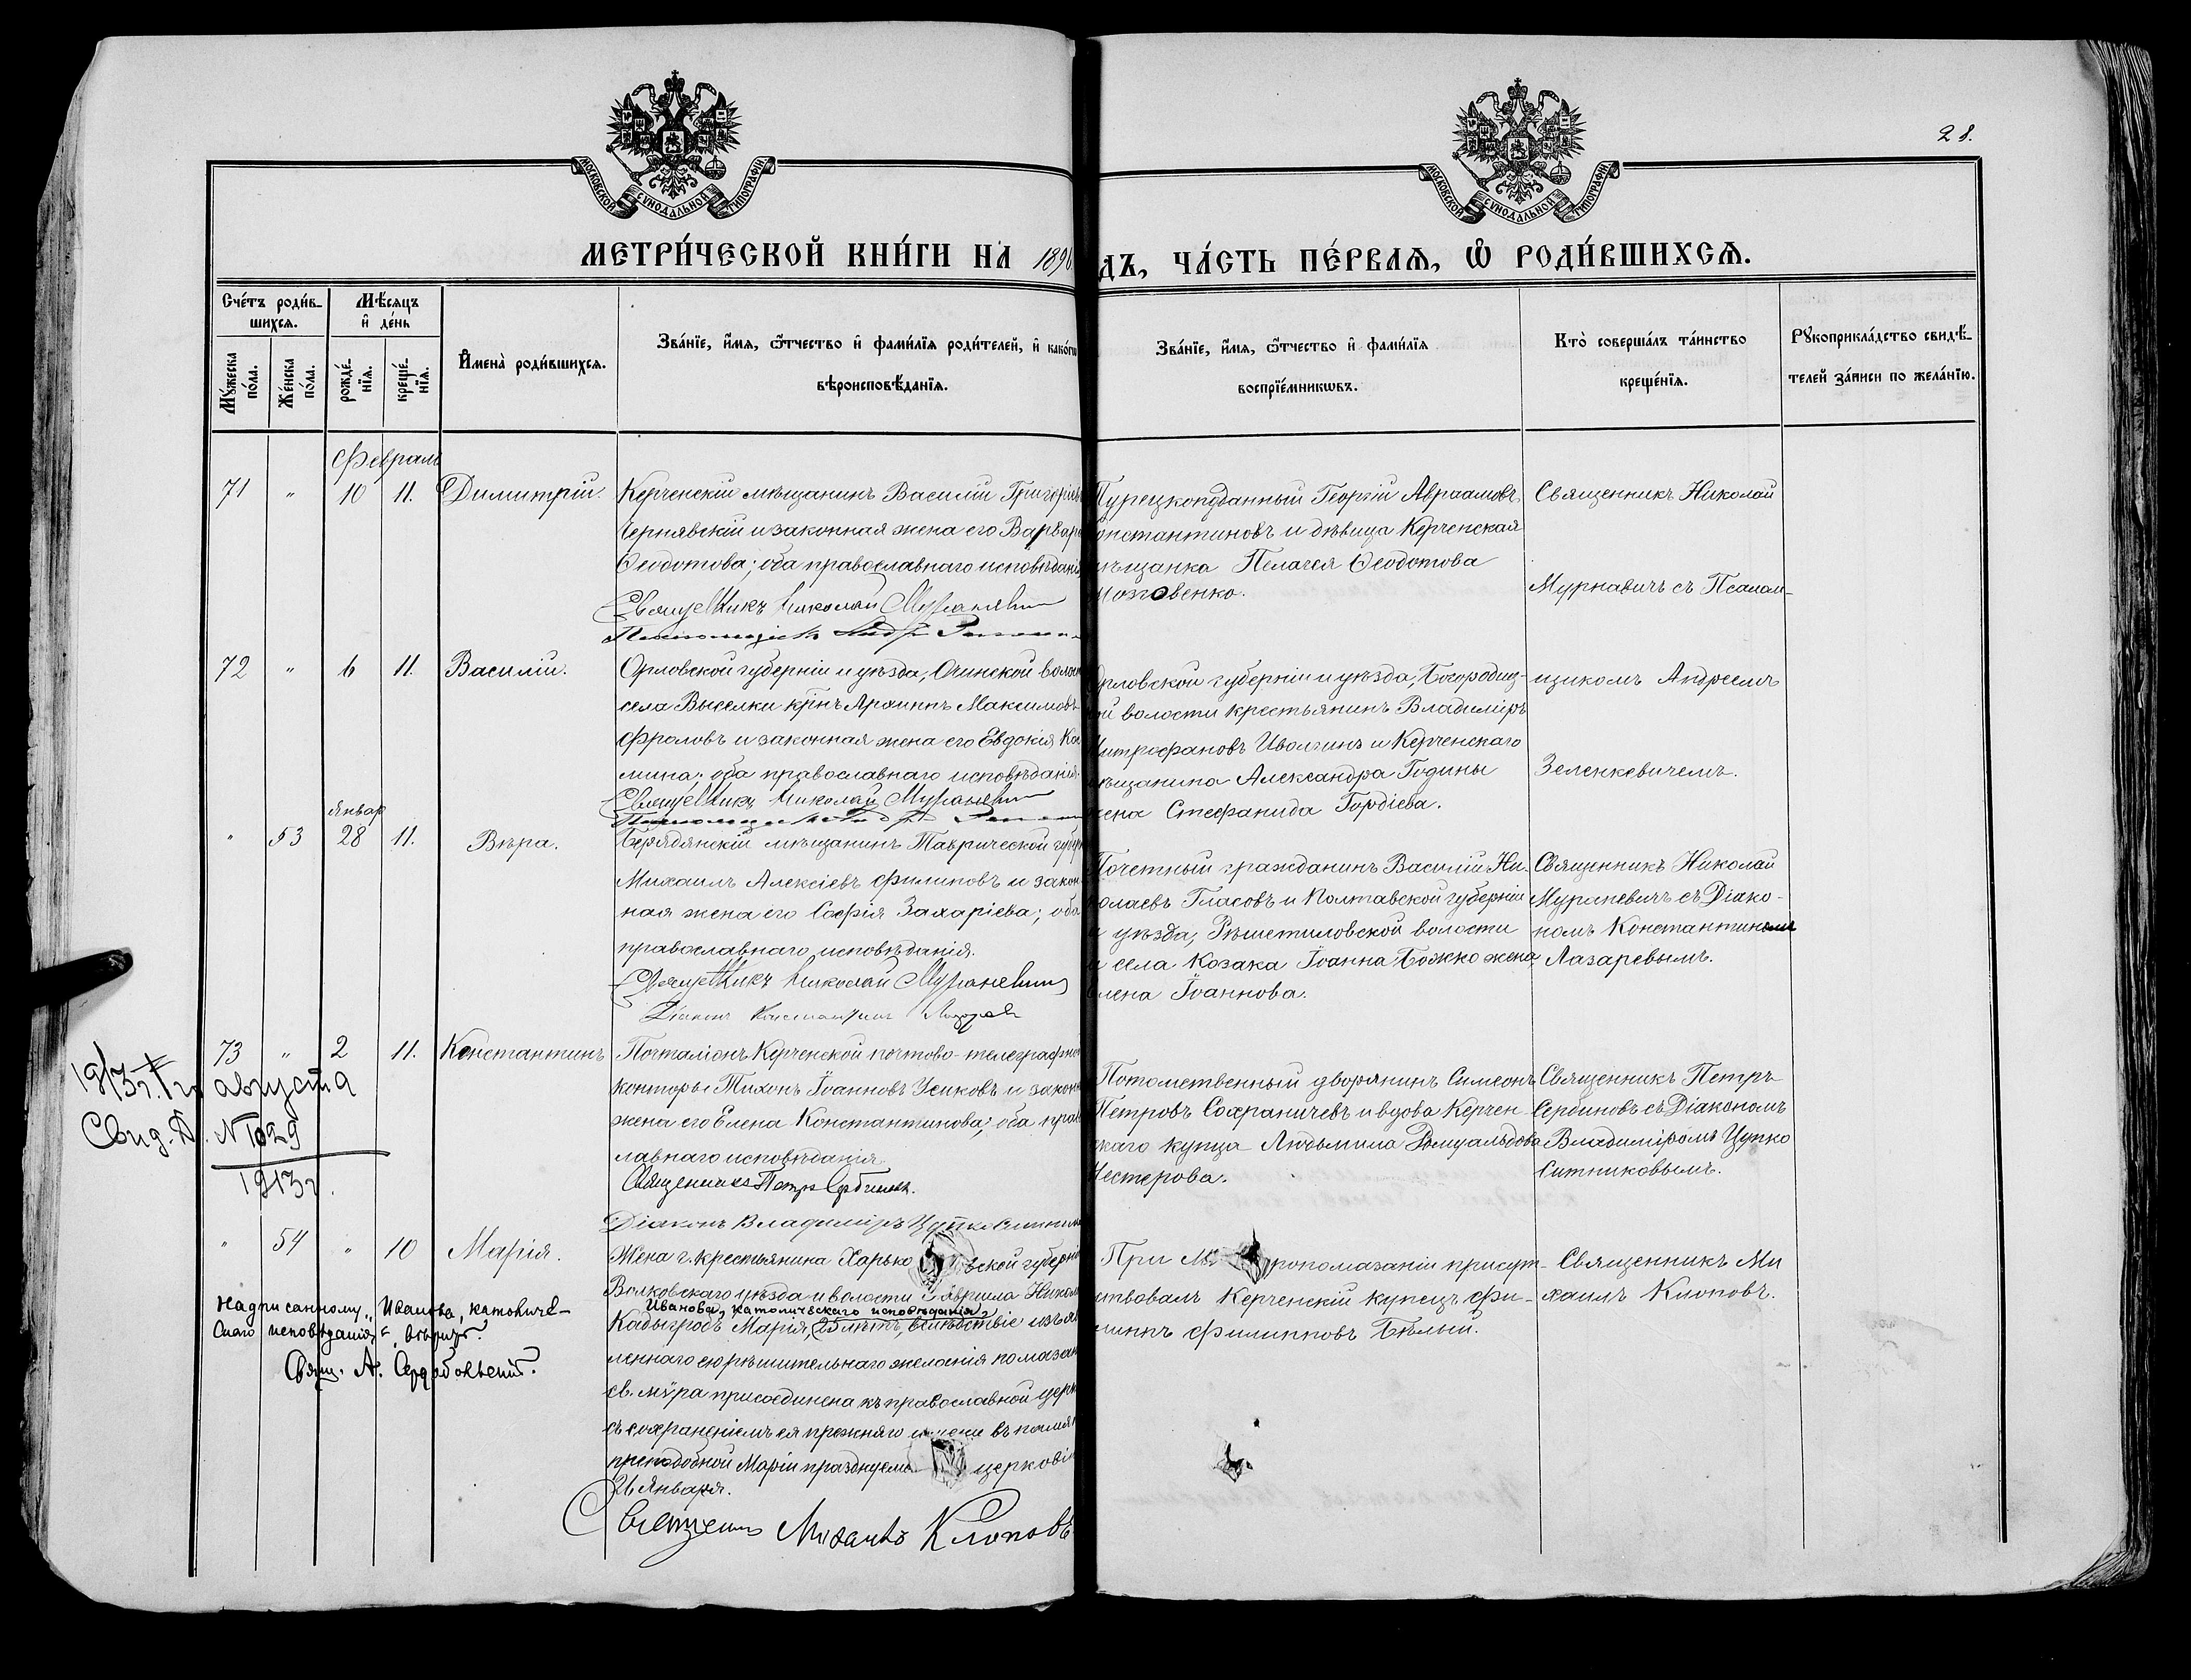 28.
МОСКОВСКОЙ СУНОДАЛЬНОЙ ТИПОГРАФІИ
МОСКОВСКОЙ СУНОДАЛЬНОЙ ТИПОГРАФІИ
МЕТРИ́ЧЕСКОЙ КНИ́ГИ НА 1896
ДЪ, ЧА́СТЬ ПЕ́РВАѦ, Ѡ҆ РОДИ́ВШИХСѦ.
Сче́тъ роди́в-
шихсѧ.
Мꙋ́жеска по́ла.
Же́нска по́ла.
Мѣ́сѧцъ
и҆ де́нь
рожде́-
нїѧ.
креще́-
нїѧ.
И҆мена̀ роди́вшихсѧ.
Зва́нїе, и҆́мѧ, ѻ҆́тчество и҆ фами́лїѧ роди́телей, и҆ како́гѡ
вѣроисповѣ́данїѧ.
Зва́нїе, и҆́мѧ, ѻ҆́тчество и҆ фами́лїѧ
воспрїе́мникѡвъ.
Кто̀ соверша́лъ та́инство
креще́нїѧ.
Рꙋкоприкла́дство свидѣ́-
телей за́писи по жела́нїю.
Февраль
71 " 10 11. Димитрій.
Керченскій мѣщанинъ Василій Григоріевъ
Чернявскій и законная жена его Варвара
Ѳеодотова; оба православнаго исповѣданія
Священникъ Николай Мураневичъ
Турецкоподданный Георгій Авраамовъ
онстантиновъ и дѣвица Керченская
мѣщанка Пелагея Ѳеодотова
Мозговенко.
Священникъ Николай
Мурнавичъ съ Псалом-
72 " 6 11. Василій.
Орловской губерніи и уѣзда, волост
села Выселки крнъ Архиппъ Максимовъ
Фроловъ и законная жена его Евдокія Ко
мина; оба православнаго исповѣданія.
Священникъ Николай Мураневичъ
Орловской губерніи и уѣзда, Богородиц-
ой волости крестьянинъ Владиміръ
Митрофановъ Иволгинъ и Керченскаго
мѣщанина Александра Годины
жена Стефанида Гордіева.
щикомъ Андреемъ
Зеленкевичемъ.
Январ
" 53 28 11. Вѣра.
Бердянскій мѣщанинъ Таврической губер
Михаилъ Алексіевъ Филиповъ и закон-
ная жена его Софія Захаріева; оба
православнаго исповѣданія.
Священникъ Николай Мураневичъ
Діаконъ Константинъ Лазарев
Почетный гражданинъ Василій Ни-
олаевъ Гласовъ и Полтавской губерніи
и уѣзда, Рѣшетиловской волости
и села Козака Іоанна Божко жена
Елена Іоаннова.
Священникъ Николай
Мураневичъ съ Діако-
номъ Константиномъ
Лазаревымъ.
73 " 2 11. Константинъ
Почталіонъ Керченской почтово-телеграфной
конторы Тихонъ Іоанновъ Усиковъ и закон
жена его Елена Константинова; оба прав
лавнаго исповѣданія
Священникъ Петръ Сербиновъ.
Діаконъ Владиміръ Цупко Ситник
Потомственный дворянинъ Симеонъ
Петровъ Сохраничевъ и вдова Керчен-
скаго купца Людмила Ромуальдова
Нестерова.
Священникъ Петръ
Сербиновъ съ Діакономъ
Владиміромъ Цупко
Ситниковымъ.
1913 г. августа
Свид. № 1029
1913 г.
" 54 " 10 Марія.
Жена г. крестьянина Харьковской губерні
Волковскаго уѣзда и волости Гавріила Никол
Иванова, католическаго исповѣданія,
Марія, 25 лѣтъ, вслѣдствіе изъяв
леннаго ею рѣшительнаго желанія помазан
св. мѵра присоединена къ православной церк
съ сохраненіемъ ея прежняго имени въ памят
преподобной Маріи празднуемо церковію
26 Января.
Священникъ Михаилъ Клоповъ
При мѵропомазаніи присут-
ствовалъ Керченскій купецъ Фи-
липпъ Филипповъ Бѣлый.
Священникъ Ми
хаилъ Клоповъ.
Надписанному „Иванова, католиче-
скаго исповѣданія“, вѣрить.
Свящ. А. Сердобольскій.